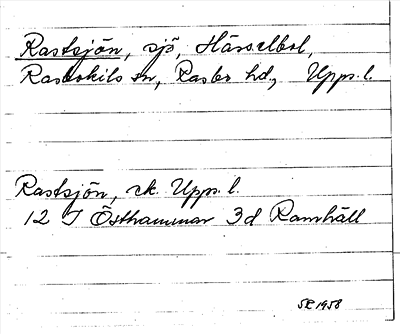 Rastsjön, sjö, Härselbol,
Rasbokils sn, Rasbo hd, Upps. l.
Rastsjön, ek. Upps. l.
12 I Östhammar 3d Ramhäll
SR 1958